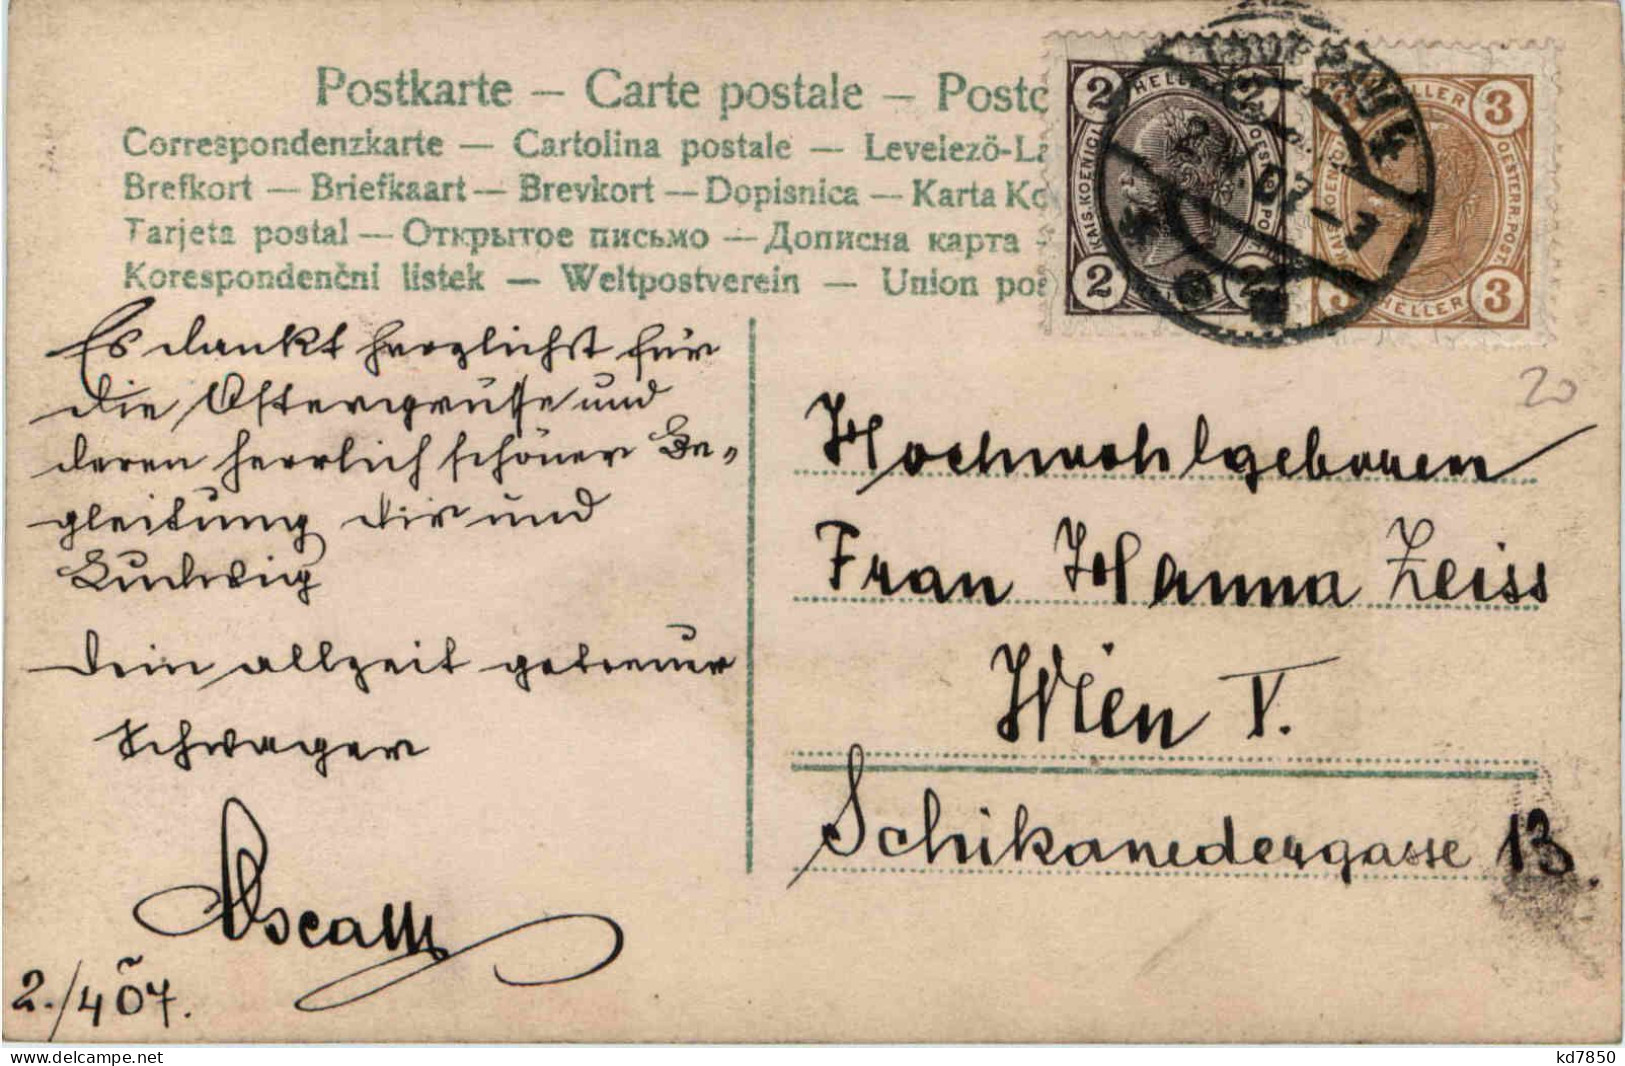 Postkarte — Carte postale — Postc
Correspondenzkarte — Cartolina postale — Levelező-La
Brefkort — Briefkaart — Brevkort — Dopisnica — Karta Ko
Tarjeta postal — Открытое письмо — Дописна карта —
Korespondenční listek — Weltpostverein — Union pos
2 HELLER 2
KAIS. KOENIGL.
OEST
POST
2 2
HELLER 3
OESTERR. POST.
3 HELLER 3
20
Es dankt herzlichst für
die Ostergrüsse und
deren herrlich schöner Be-
gleitung dir und
Ludwig
Dein allzeit getreuer
Schwager
Oscar
2./4 07.
Hochwohlgeboren
Frau Hanna Zeiss
Wien V.
Schikanedergasse 13.
www.delcampe.net
kd7850